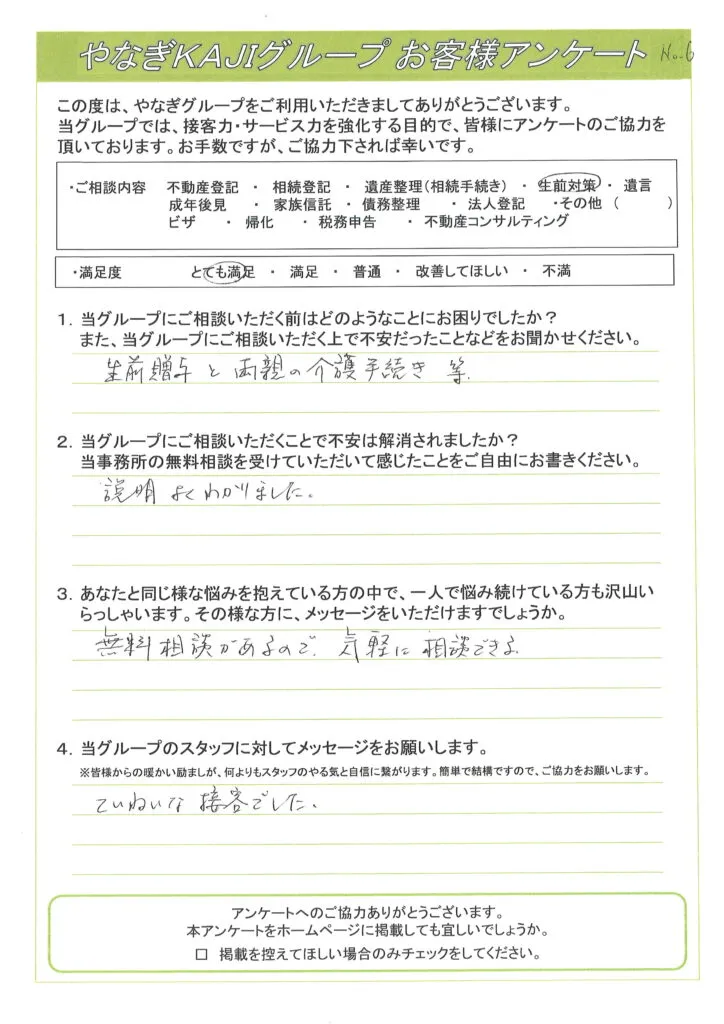 やなぎKAJIグループ お客様アンケート No.6
この度は、やなぎグループをご利用いただきましてありがとうございます。
当グループでは、接客力・サービス力を強化する目的で、皆様にアンケートのご協力を
頂いております。お手数ですが、ご協力下されば幸いです。
・ご相談内容 不動産登記 ・ 相続登記 ・ 遺産整理(相続手続き) ・ 生前対策 ・ 遺言
成年後見 ・ 家族信託 ・ 債務整理 ・ 法人登記 ・その他 ( )
ビザ ・ 帰化 ・ 税務申告 ・ 不動産コンサルティング
・満足度 とても満足 ・ 満足 ・ 普通 ・ 改善してほしい ・ 不満
1. 当グループにご相談いただく前はどのようなことにお困りでしたか?
また、当グループにご相談いただく上で不安だったことなどをお聞かせください。
生前贈与と両親の介護手続き 等.
2. 当グループにご相談いただくことで不安は解消されましたか?
当事務所の無料相談を受けていただいて感じたことをご自由にお書きください。
説明よくわかりました。
3. あなたと同じ様な悩みを抱えている方の中で、一人で悩み続けている方も沢山い
らっしゃいます。その様な方に、メッセージをいただけますでしょうか。
無料相談があるので、気軽に相談できる
4. 当グループのスタッフに対してメッセージをお願いします。
※皆様からの暖かい励ましが、何よりもスタッフのやる気と自信に繋がります。簡単で結構ですので、ご協力をお願いします。
ていねいな接客でした、
アンケートへのご協力ありがとうございます。
本アンケートをホームページに掲載しても宜しいでしょうか。
□ 掲載を控えてほしい場合のみチェックをしてください。